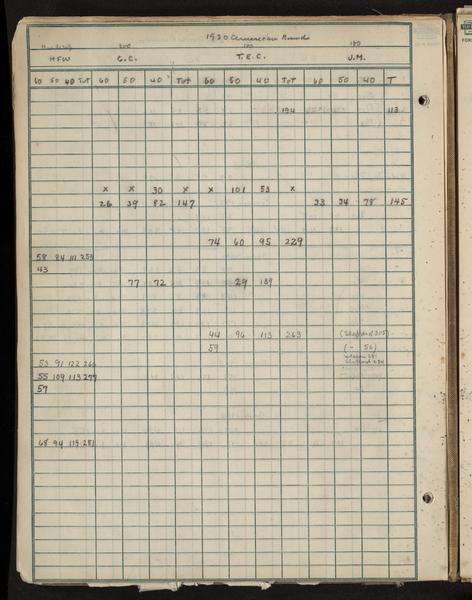 1930 American Round
200 180 180
HSW C.C. T.E.C. J.M.
60 50 40 Tot 60 50 40 Tot 60 50 40 Tot 60 50 40 T
194 113
x x 30 x x 101 53 x
26 39 82 147 33 34 78 145
74 60 95 229
58 84 111 253
43
77 72 29 139
44 96 113 263 (Sheppard 305)
59 (- 56)
53 91 122 266
55 109 113 277
57
68 94 119 281